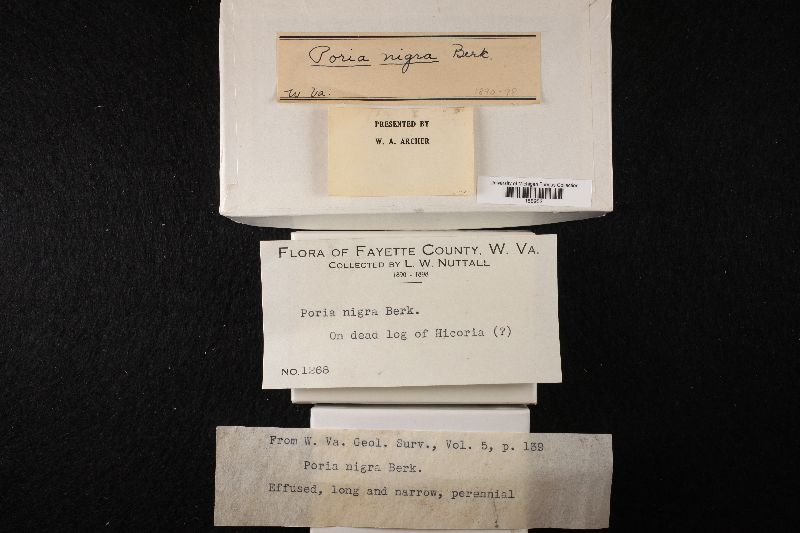 Poria nigra Berk.
W Va.
1890-98
PRESENTED BY
W. A. ARCHER
University of Michigan Fungus Collection
FLORA OF FAYETTE COUNTY, W. VA.
COLLECTED BY L. W. NUTTALL
1890 - 1898
Poria nigra Berk.
On dead log of Hicoria (?)
NO. 1268
From W. Va. Geol. Surv., Vol. 5, p. 139
Poria nigra Berk.
Effused, long and narrow, perennial